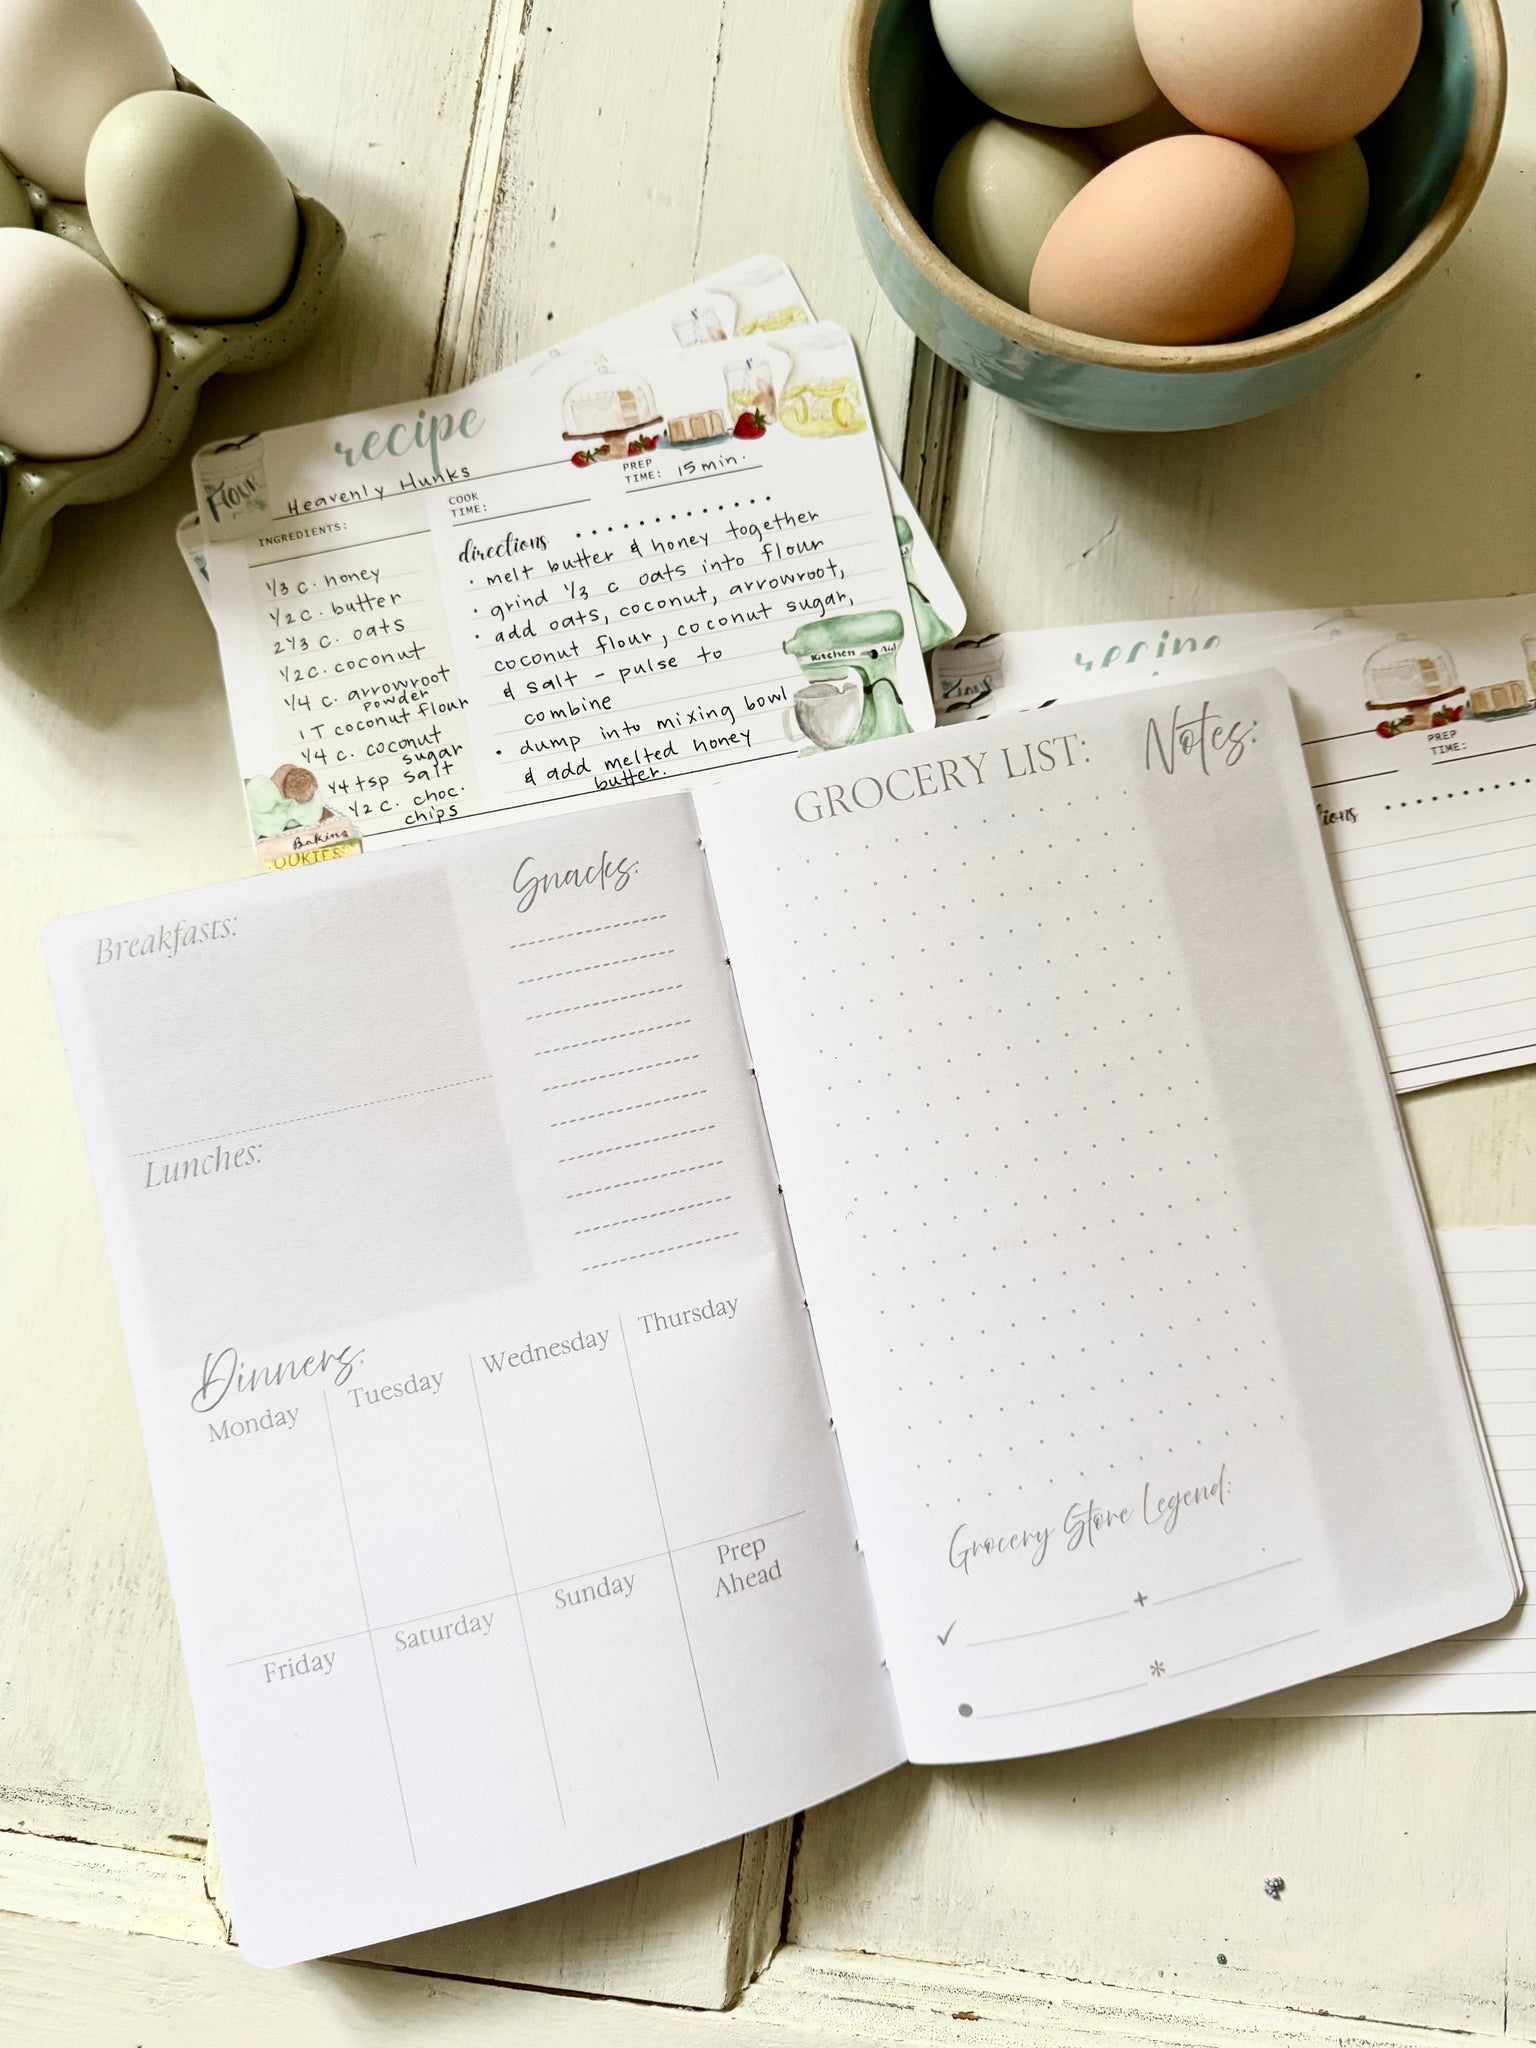 recipe
FLOUR
Heavenly Hunks
COOK
TIME:
PREP
TIME: 15 min.
INGREDIENTS:
1/3 c. honey
1/2 c. butter
2 1/3 c. oats
1/2 c. coconut
1/4 c. arrowroot
powder
1 T coconut flour
1/4 c. coconut
sugar
1/4 tsp salt
1/2 c. choc.
chips
directions
• melt butter & honey together
• grind 1/3 c oats into flour
• add oats, coconut, arrowroot,
coconut flour, coconut sugar,
& salt - pulse to
combine
• dump into mixing bowl
& add melted honey
butter.
Kitchen Aid
Baking
COOKIES
recipe
PREP
TIME:
tions
Breakfasts:
Lunches:
Snacks:
Dinners:
Monday
Tuesday
Wednesday
Thursday
Friday
Saturday
Sunday
Prep
Ahead
GROCERY LIST:
Notes:
Grocery Store Legend:
✓
+
●
*